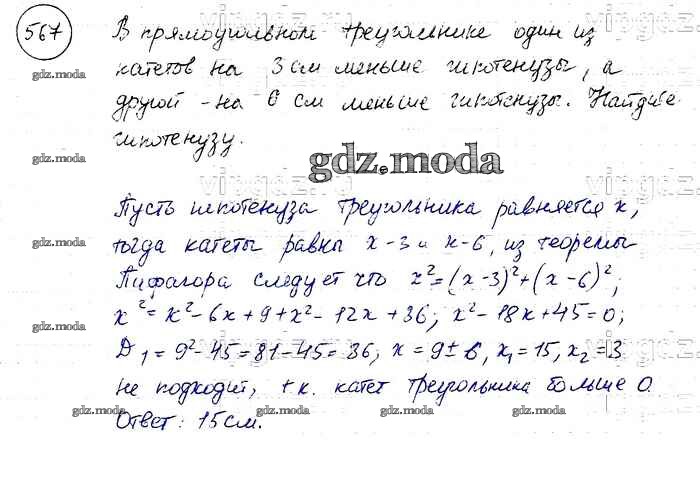 567
В прямоугольном треугольнике один из
катетов на 3 см меньше гипотенузы, а
другой - на 6 см меньше гипотенузы. Найдите
гипотенузу.
gdz.moda
Пусть гипотенуза треугольника равняется x,
тогда катеты равны x-3 и x-6, из теоремы
Пифагора следует что x²=(x-3)²+(x-6)²;
x²=x²-6x+9+x²-12x+36; x²-18x+45=0;
D₁=9²-45=81-45=36; x=9±6, x₁=15, x₂=3
не подходит, т.к. катет треугольника больше 0.
Ответ: 15см.
gdz.moda
gdz.moda
gdz.moda
gdz.moda
gdz.moda
gdz.moda
gdz.moda
gdz.moda